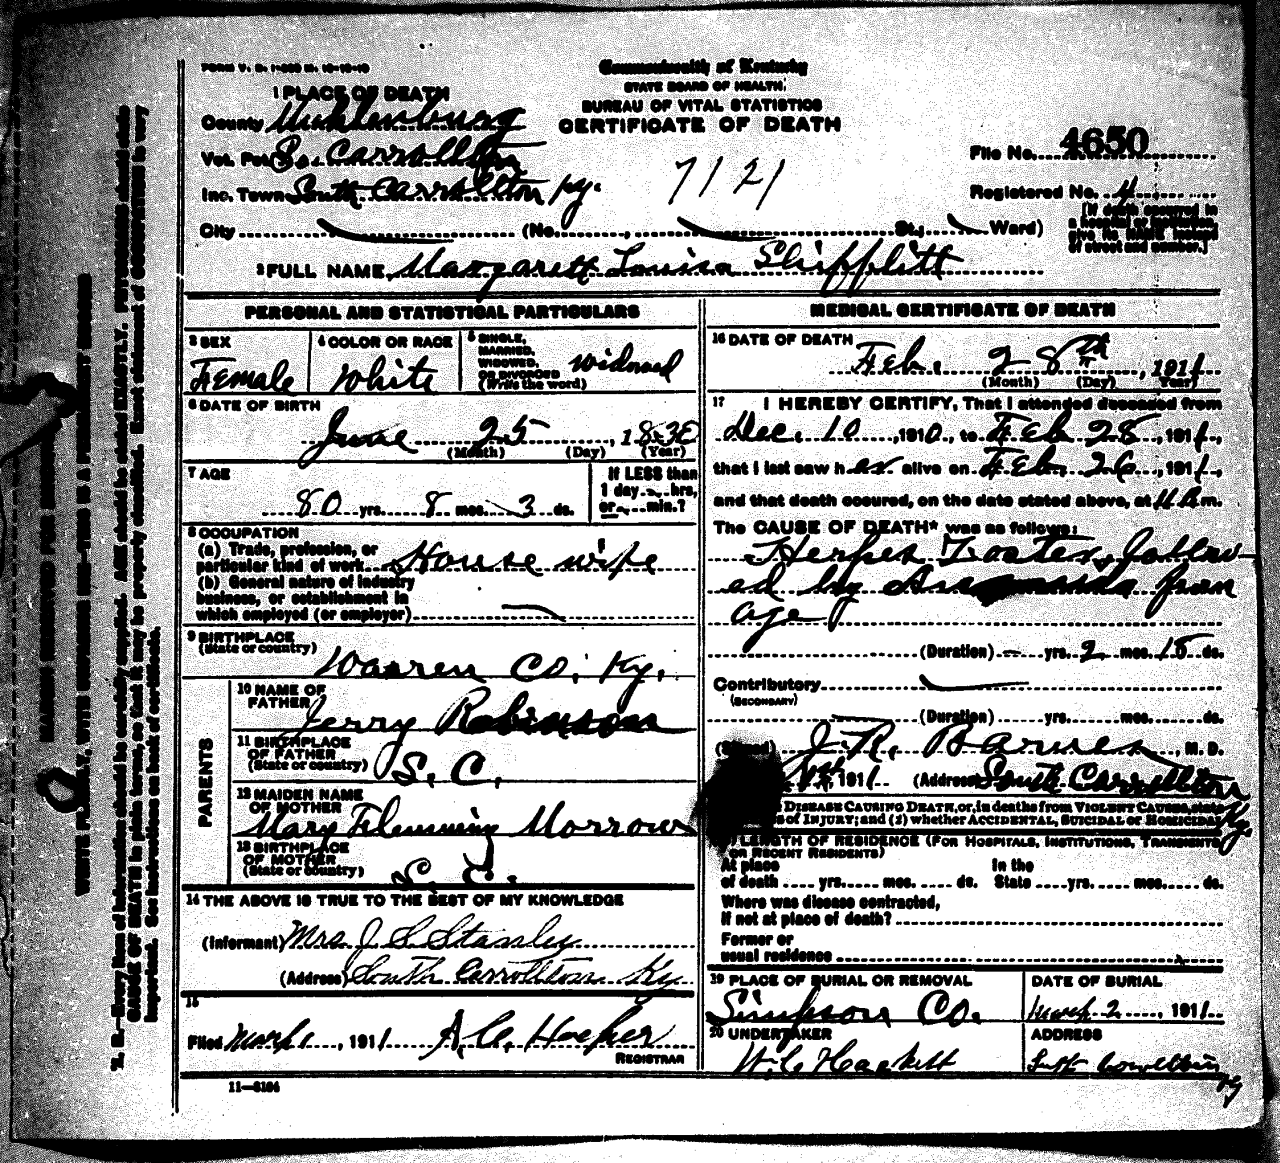 FORM V. S. 1-
Commonwealth of Kentucky
STATE BOARD OF HEALTH.
BUREAU OF VITAL STATISTICS
CERTIFICATE OF DEATH
1 PLACE OF DEATH
County Muhlenburg
Vot. Pct. So. Carrollton
Inc. Town South Carrollton Ky.
7121
File No. 4650
Registered No. 4
City (No. , St.; Ward)
[If death occurred in a hospital or institution, give its NAME instead of street and number.]
2 FULL NAME Margarett Louisa Shifflitt
PERSONAL AND STATISTICAL PARTICULARS
3 SEX
Female
4 COLOR OR RACE
White
5 SINGLE, MARRIED, WIDOWED, OR DIVORCED (Write the word)
widowed
6 DATE OF BIRTH
June 25, 1830
(Month) (Day) (Year)
7 AGE
80 yrs. 8 mos. 3 ds.
If LESS than 1 day hrs, or min.?
8 OCCUPATION
(a) Trade, profession, or
particular kind of work House wife
(b) General nature of industry
business, or establishment in
which employed (or employer)
9 BIRTHPLACE
(State or country)
Warren Co. Ky.
PARENTS
10 NAME OF FATHER
Jerry Robinson
11 BIRTHPLACE OF FATHER
(State or country) S. C.
12 MAIDEN NAME OF MOTHER
Mary Flemming Morrow
13 BIRTHPLACE OF MOTHER
(State or country) S. C.
14 THE ABOVE IS TRUE TO THE BEST OF MY KNOWLEDGE
(Informant) Mrs. J S Stanley
(Address) South Carrollton Ky
15
Filed March 1, 1911
REGISTRAR
11—8184
MEDICAL CERTIFICATE OF DEATH
16 DATE OF DEATH
Feb. 28th, 1911
(Month) (Day) (Year)
17 I HEREBY CERTIFY, That I attended deceased from
Dec. 10, 1910, to Feb 28, 1911,
that I last saw her alive on Feb. 26, 1911,
and that death occured, on the date stated above, at 11 a m.
The CAUSE OF DEATH* was as follows:
Herpes Zoster, follow-
ed by from
age
(Duration) yrs. 2 mos. 18 ds.
Contributory
(SECONDARY)
(Duration) yrs. mos. ds.
(Signed) J. R. Barnes, M. D.
1911 (Address) South Carrollton Ky.
DISEASE CAUSING DEATH, or, in deaths from VIOLENT CAUSES, state
OF INJURY; and (2) whether ACCIDENTAL, SUICIDAL or HOMICIDAL
LENGTH OF RESIDENCE (FOR HOSPITALS, INSTITUTIONS, TRANSIENTS OR RECENT RESIDENTS)
At place of death yrs. mos. ds. In the State yrs. mos. ds.
Where was disease contracted,
if not at place of death?
Former or
usual residence
19 PLACE OF BURIAL OR REMOVAL
Simpson Co.
DATE OF BURIAL
March 2, 1911
20 UNDERTAKER
W. C. Hackett
ADDRESS
South Carrollton Ky
MARGIN RESERVED FOR BINDING
WRITE PLAINLY, WITH UNFADING INK—THIS IS A PERMANENT RECORD
N. B.—Every item of information should be carefully supplied. AGE should be stated EXACTLY. PHYSICIANS should state
CAUSE OF DEATH in plain terms, so that it may be properly classified. Exact statement of OCCUPATION is very
important. See instructions on back of certificate.